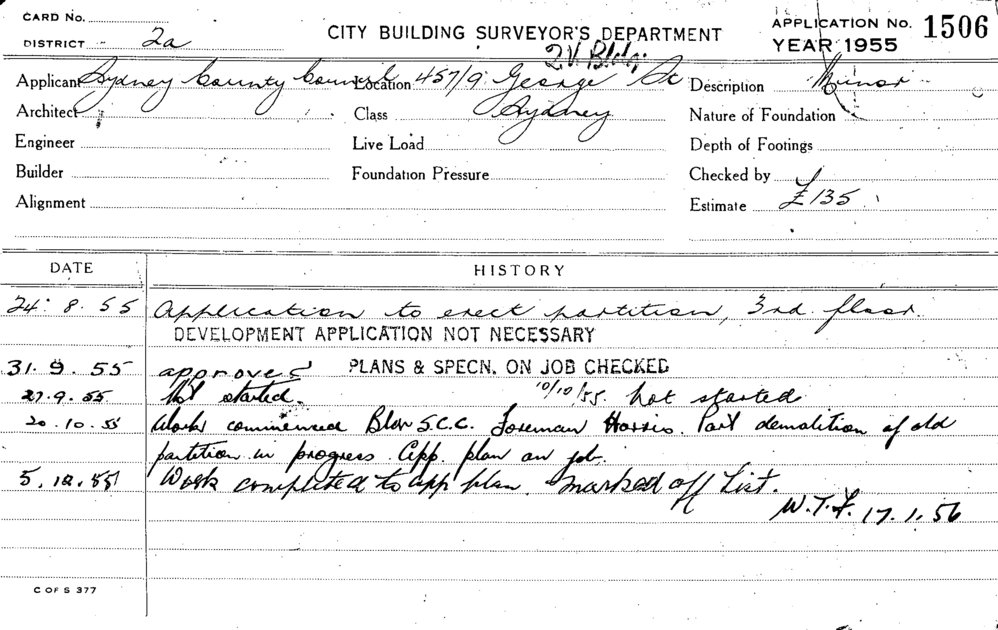 CARD No.
DISTRICT 2a
CITY BUILDING SURVEYOR'S DEPARTMENT
APPLICATION No. 1506
YEAR 1955
Q.V. Bldg.
Applicant Sydney County Council Location 457/9 George St Description Minor
Architect Class Sydney Nature of Foundation
Engineer Live Load Depth of Footings
Builder Foundation Pressure Checked by
Alignment Estimate £135
DATE HISTORY
24.8.55 Application to erect partition, 3rd floor.
DEVELOPMENT APPLICATION NOT NECESSARY
31.9.55 approved PLANS & SPECN. ON JOB CHECKED
27.9.55 Not started. 10/10/55. not started
20.10.55 Work commenced Bldr S.C.C. Foreman Harris. Part demolition of old
partition in progress. App. plan on job.
5.12.55 Work completed to app plan. Marked off List.
W.T.F. 17.1.56
C OF S 377